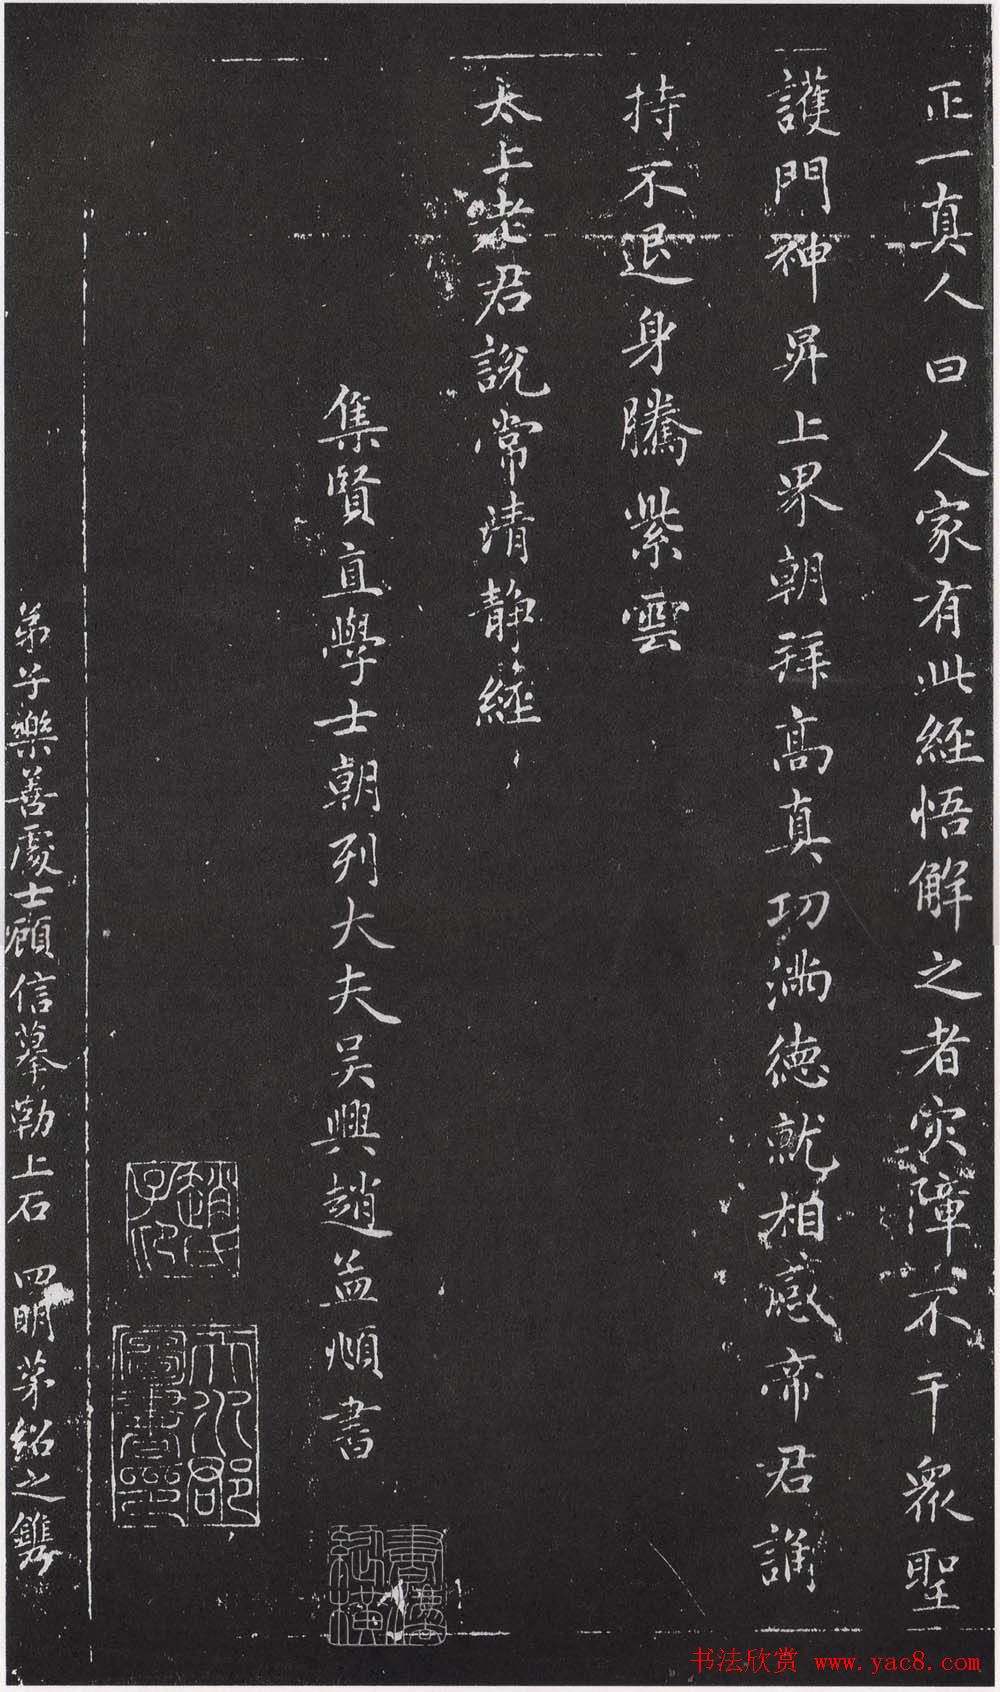 正一真人曰人家有此經悟解之者灾障不干衆聖
護門神昇上界朝拜高真功滿德就相感帝君誦
持不退身騰紫雲
太上老君說常清靜經
集賢直學士朝列大夫吳興趙孟頫書
趙氏子昂
大水郡圖書印
弟子樂善處士顧信摹勒上石 四明茅紹之鐫
书法欣赏 www.yac8.com